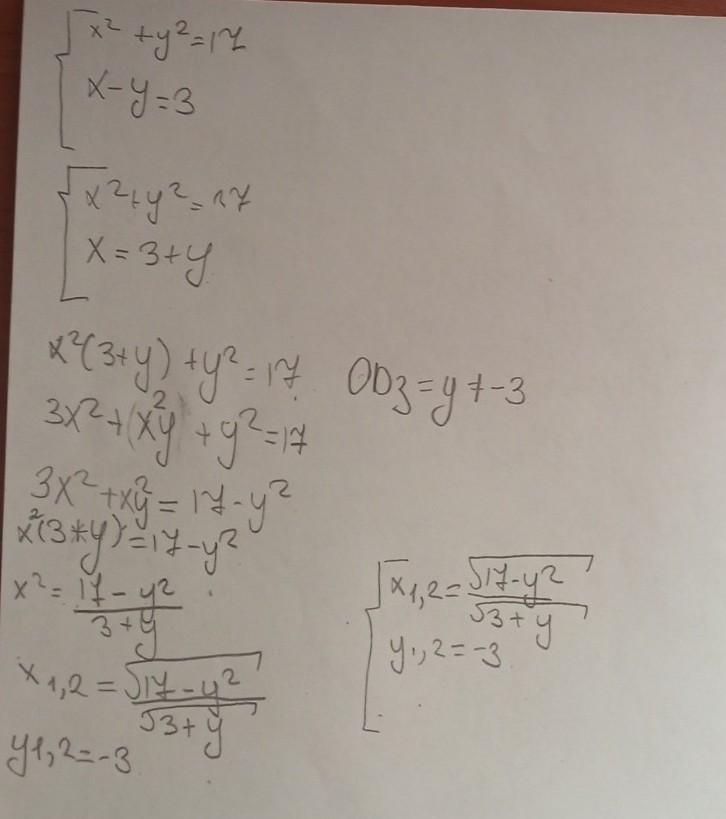 x² + y² = 17
x - y = 3
x² + y² = 17
x = 3 + y
x²(3+y) + y² = 17 ODз = y ≠ -3
3x² + (x²y) + y² = 17
3x² + xy² = 17 - y²
x²(3+y) = 17 - y²
x² = (17 - y²)/(3 + y)
x1,2 = √(17 - y²)/√(3 + y)
y1,2 = -3
x1,2 = √(17 - y²)/√(3 + y)
y1,2 = -3